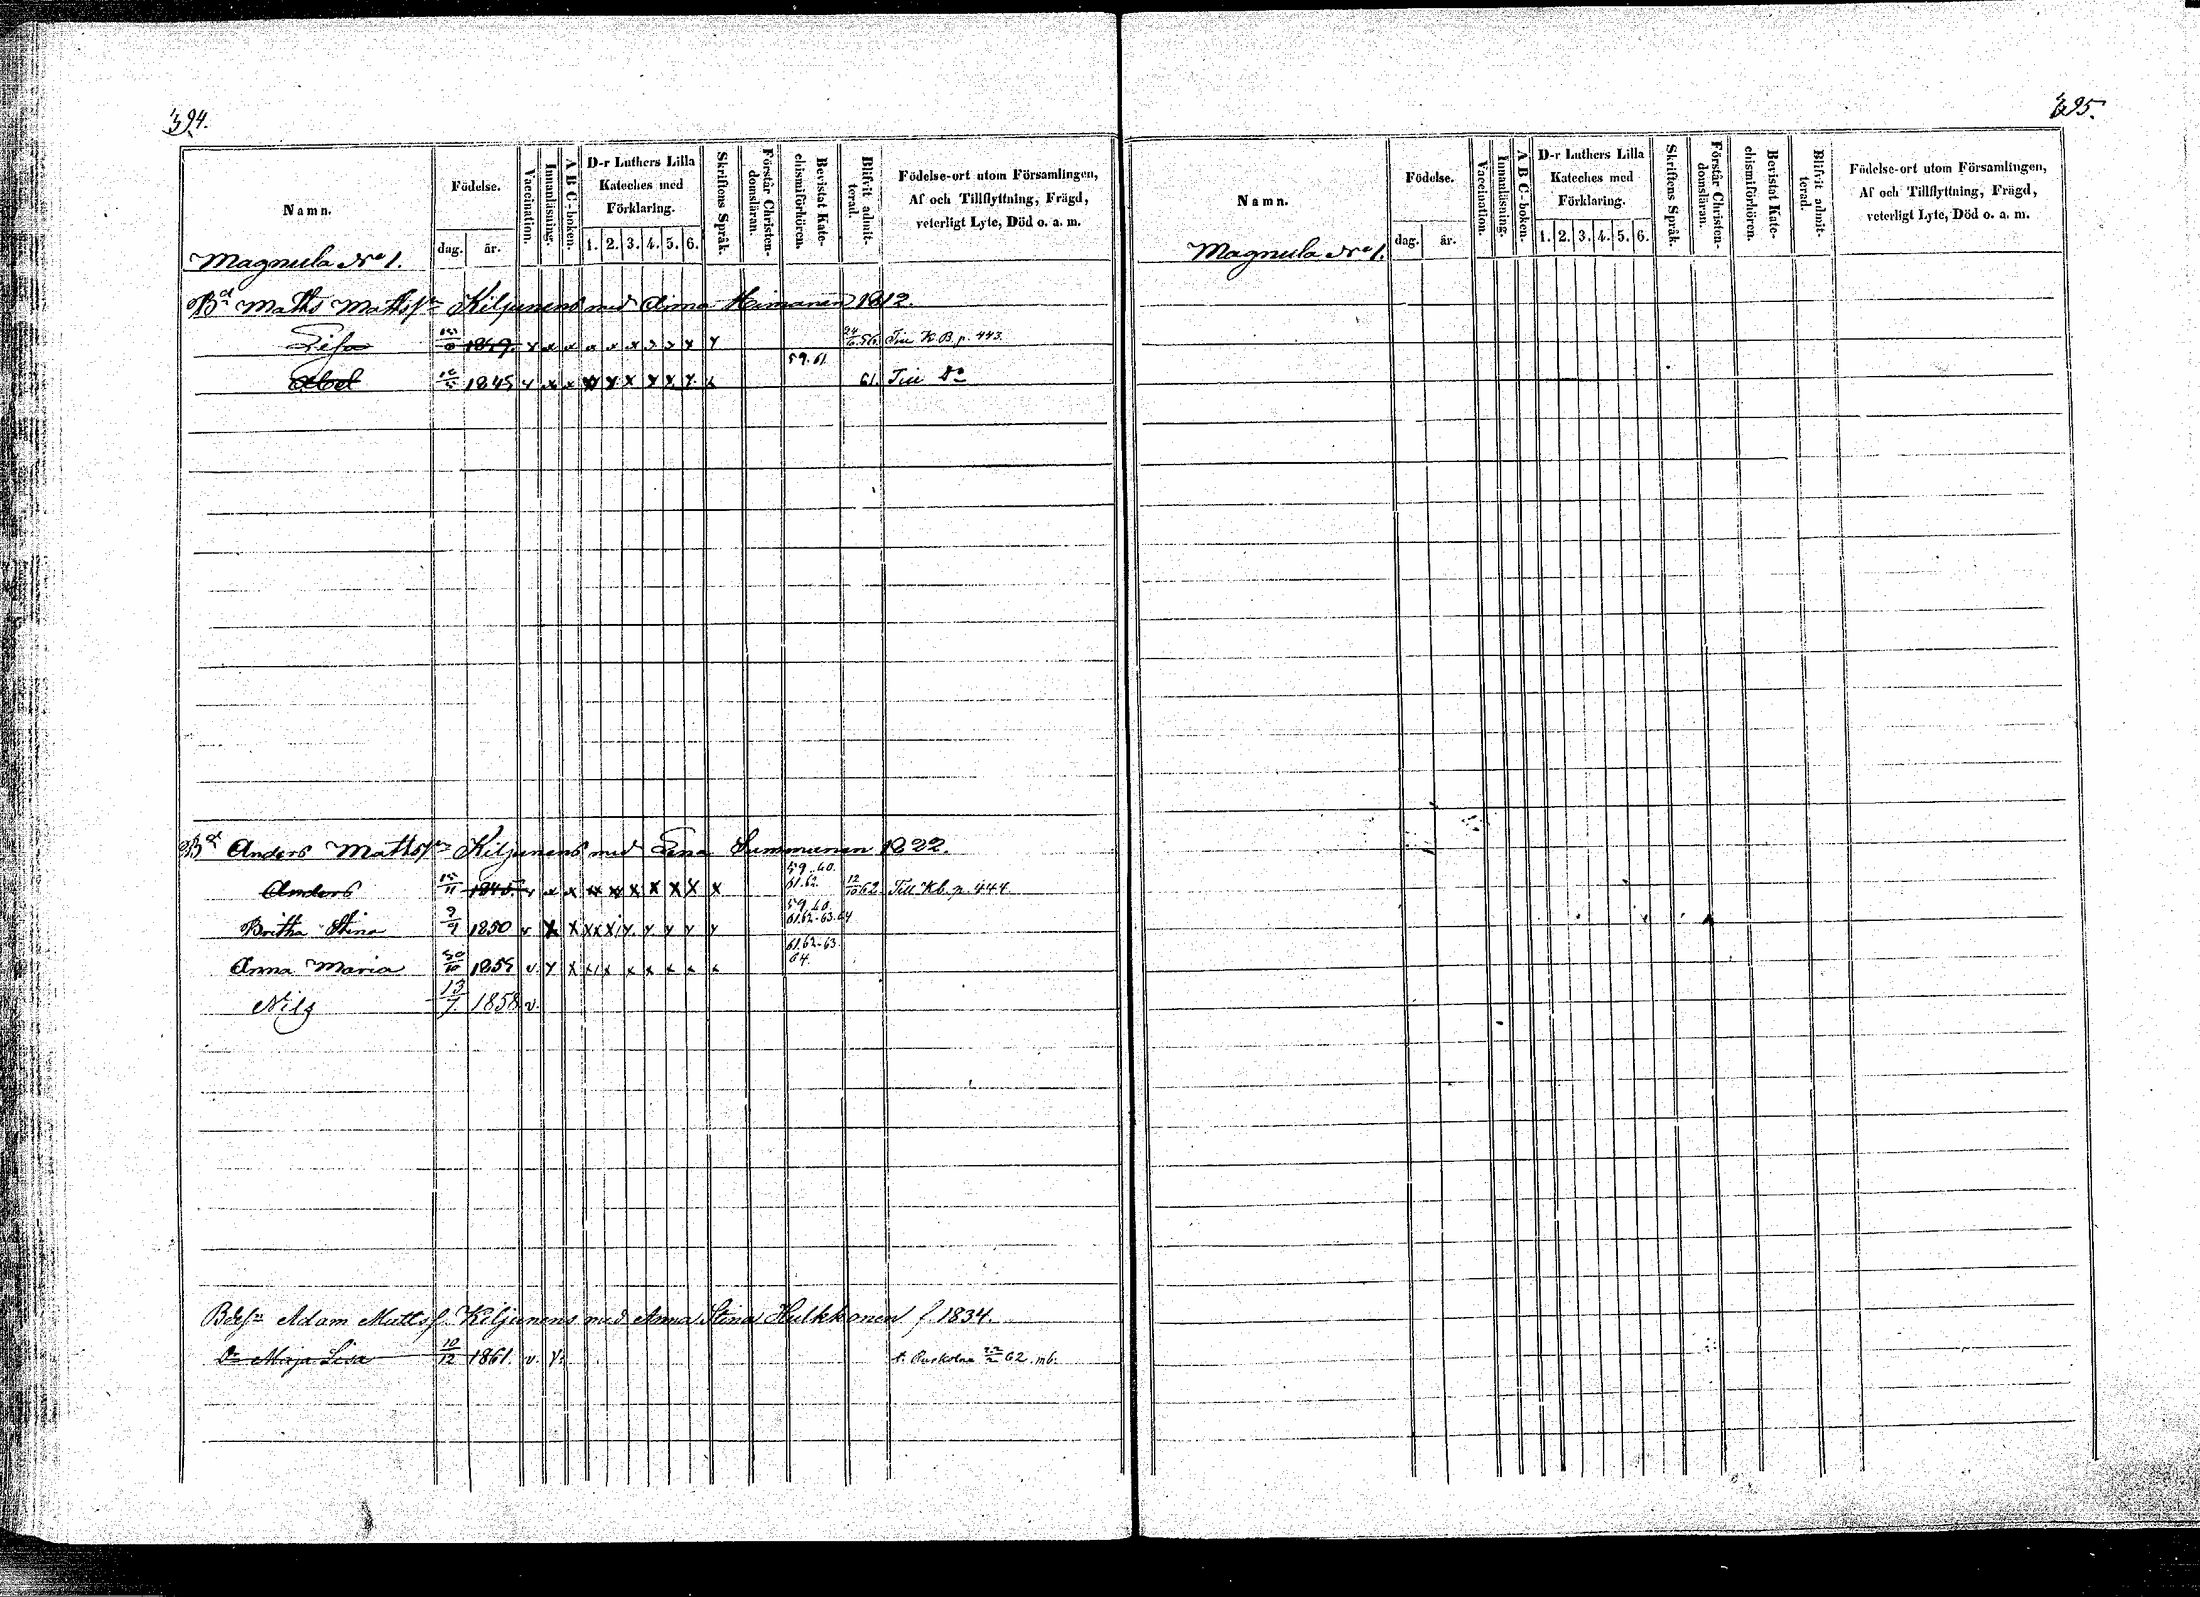 394.
Namn.
Födelse.
dag. år.
Vaccination.
Innanläsning.
A B C-boken.
D-r Luthers Lilla
Kateches med
Förklaring.
1. 2. 3. 4. 5. 6.
Skriftens Språk.
Förstår Christen-
domsläran.
Bevistat Kate-
chismiförhören.
Blifvit admit-
terad.
Födelse-ort utom Församlingen,
Af och Tillflyttning, Frägd,
veterligt Lyte, Död o. a. m.
Magnula No 1.
Bd Matts Mattss:n Kiljunens med Anna Heimanen 1812.
Lisa v x x x x x x x x x Till K.B. p. 443.
59. 61
Abel 1845 v x x x x x x x x x 61. Till Do
Bd Anders Mattss:n Kiljunens med Lena Summanen 1822.
59. 60.
Anders 15/11 v x x x x x x x x x 61.62. 12/10 62 Till Kb. p. 444.
59. 60.
Britha Stina 1850 v x x x x x x x x x 61.62-63.64
61.62-63.
Anna Maria 30/10 v. x x x x x x x x x 64.
Nils 13/7. 1858 v.
Bdess:n Adam Mattss. Kiljunens med Anna Stina Hulkkonen f. 1834.
Dr Maja Lisa 10/12 1861. v. 62. mb.
395.
Namn.
Födelse.
dag. år.
Vaccination.
Innanläsning.
A B C-boken.
D-r Luthers Lilla
Kateches med
Förklaring.
1. 2. 3. 4. 5. 6.
Skriftens Språk.
Förstår Christen-
domsläran.
Bevistat Kate-
chismiförhören.
Blifvit admit-
terad.
Födelse-ort utom Församlingen,
Af och Tillflyttning, Frägd,
veterligt Lyte, Död o. a. m.
Magnula No 1.